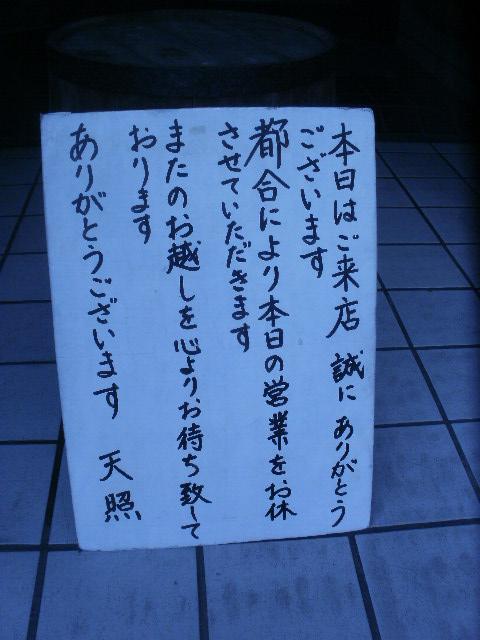 本日はご来店 誠に ありがとう
ございます
都合により本日の営業をお休
させていただきます
またのお越しを心よりお待ち致して
おります
ありがとうございます 天照